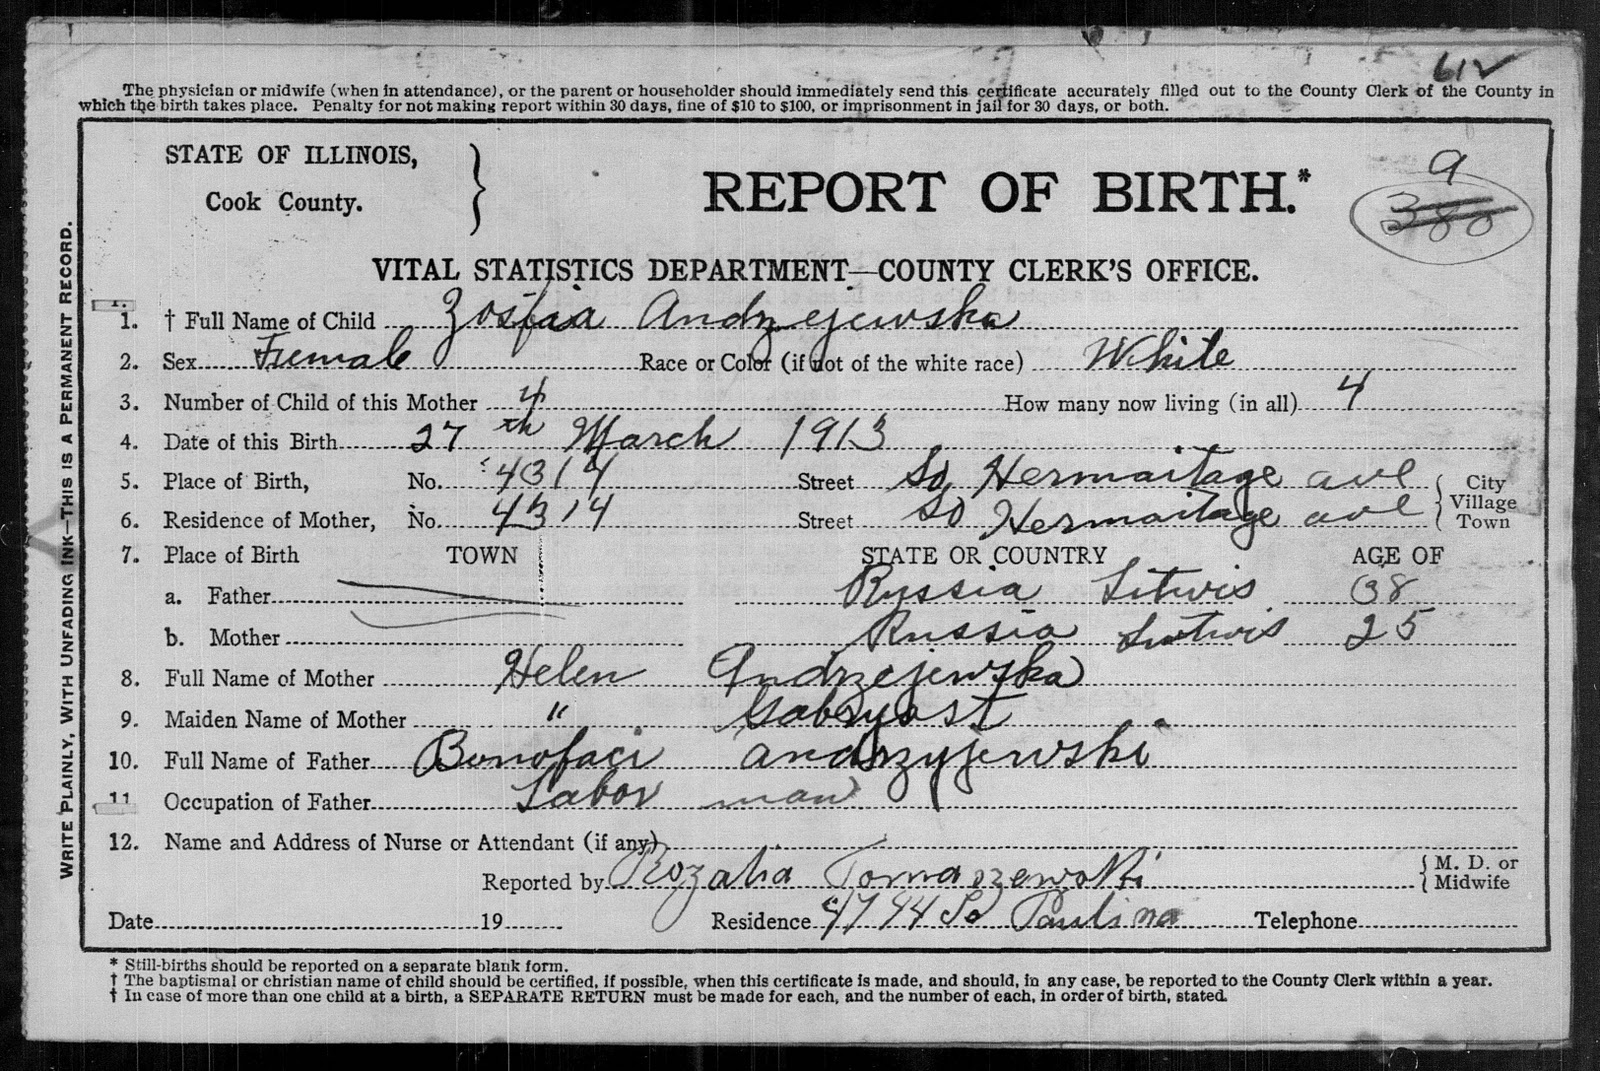 612
The physician or midwife (when in attendance), or the parent or householder should immediately send this certificate accurately filled out to the County Clerk of the County in
which the birth takes place. Penalty for not making report within 30 days, fine of $10 to $100, or imprisonment in jail for 30 days, or both.
WRITE PLAINLY, WITH UNFADING INK—THIS IS A PERMANENT RECORD.
STATE OF ILLINOIS,
Cook County.
REPORT OF BIRTH.*
9
380
VITAL STATISTICS DEPARTMENT—COUNTY CLERK'S OFFICE.
1. † Full Name of Child Zosfia Andrzejewska
2. Sex Fuemale Race or Color (if not of the white race) White
3. Number of Child of this Mother 4 How many now living (in all) 4
4. Date of this Birth 27th March 1913
5. Place of Birth, No. 4314 Street So Hermaitage ave City
6. Residence of Mother, No. 4314 Street So Hermaitage ave Village Town
7. Place of Birth TOWN STATE OR COUNTRY AGE OF
a. Father Russia Litwis 38
b. Mother Russia 25
8. Full Name of Mother Helen Andrzejewska
9. Maiden Name of Mother " Gabryost
10. Full Name of Father Bonofaci andrzyjewski
11. Occupation of Father Labor man
12. Name and Address of Nurse or Attendant (if any)
Reported by Rozalia Tomaszewski M. D. or Midwife
Date 19 Residence 4744 So Paulina Telephone
* Still-births should be reported on a separate blank form.
† The baptismal or christian name of child should be certified, if possible, when this certificate is made, and should, in any case, be reported to the County Clerk within a year.
† In case of more than one child at a birth, a SEPARATE RETURN must be made for each, and the number of each, in order of birth, stated.